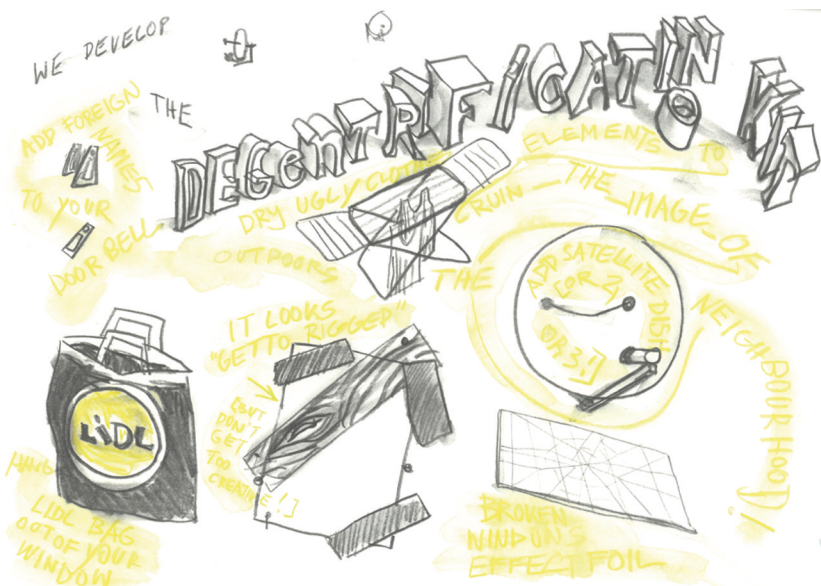 WE DEVELOP
THE
DECENTRIFICATION KIT
ADD FOREIGN
NAMES
TO YOUR
DOOR BELL
DRY UGLY CLOTHES
OUTDOORS
ELEMENTS TO
RUIN_THE_IMAGE_OF
THE
NEIGHBOURHOOD!
ADD SATELLITE DISH
[OR 2,
OR 3!]
IT LOOKS
"GETTO RIGGED"
[BUT
DON'T
GET
TOO
CREATIVE!]
LiDL
HANG
LIDL BAG
OUT OF YOUR
WINDOW
BROKEN
WINDOWS
EFFECT FOIL